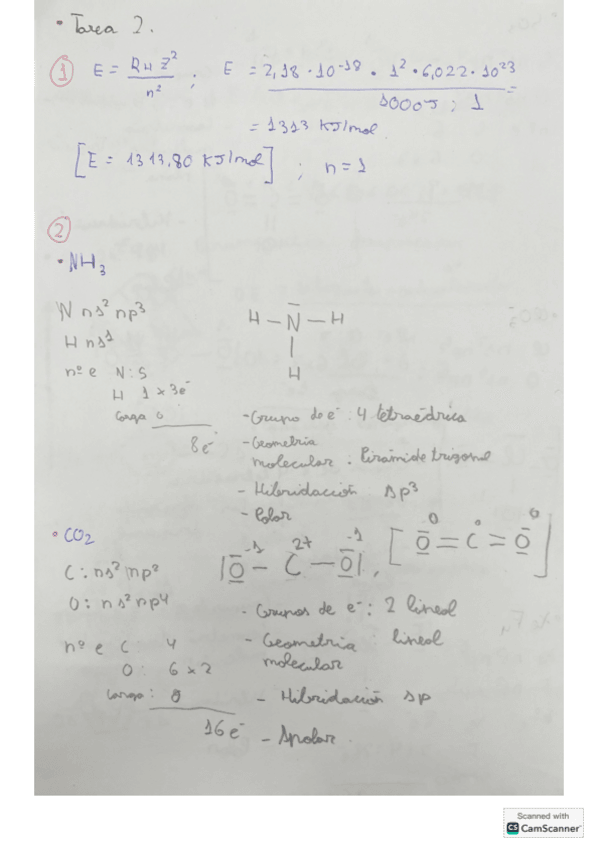 • Tarea 2.
① E = RH Z² / n² ; E = 2,18 · 10⁻¹⁸ · 1² · 6,022 · 10²³ / 1000J ; 1 =
= 1313 KJ/mol
[E = 1313,80 KJ/mol] ; n = 1
②
• NH₃
N ns² np³
H ns¹
nº e N : 5
H 1 × 3e⁻
Carga 0
8e⁻
H – N – H
|
H
- Grupo de e⁻ : 4 tetraédrica
- Geometria
molecular : Pirámide trigonal
- Hibridación sp³
- Polar
• CO₂
C : ns² np²
O : ns² np⁴
nº e C : 4
O : 6 × 2
Carga : 0
16 e⁻
|O⁻¹ – C²⁺ – O⁻¹| , [O⁰ = C⁰ = O⁰]
- Grupos de e⁻ : 2 lineal
- Geometria : lineal
molecular
- Hibridación sp
- Apolar
Scanned with
CS CamScanner